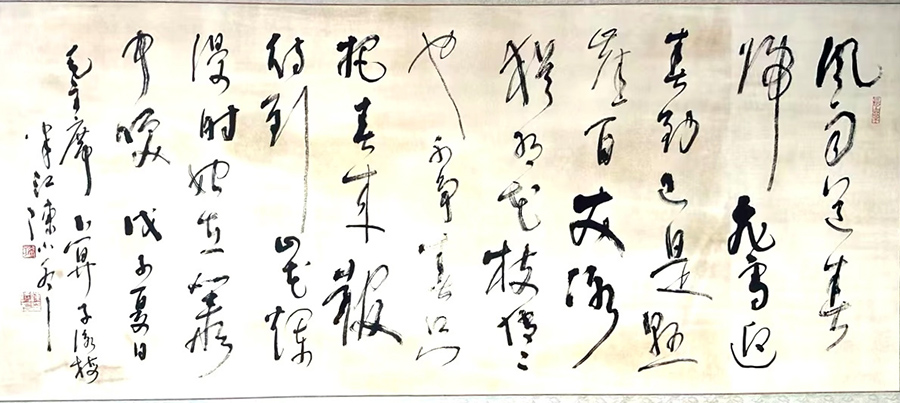 風雨送春
歸飛雪迎
春到已是懸
崖百丈冰
猶有花枝俏〻
也不爭春只
把春來報
待到山花爛
漫時她在叢
中笑 戊子夏日
毛主席卜算子詠梅
江陳小